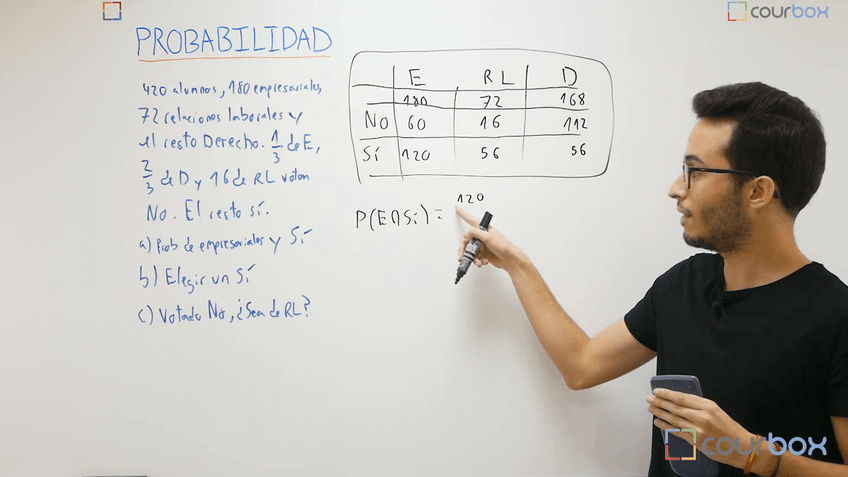 courbox
PROBABILIDAD
420 alumnos, 180 empresariales,
72 relaciones laborales y
el resto Derecho. 1/3 de E,
2/3 de D y 16 de RL votan
No. El resto sí.
a) Prob de empresariales y Sí
b) Elegir un Sí
c) Votado No, ¿Sea de RL?
E RL D
180 72 168
No 60 16 112
Sí 120 56 56
P(E∩Sí) = 120
courbox